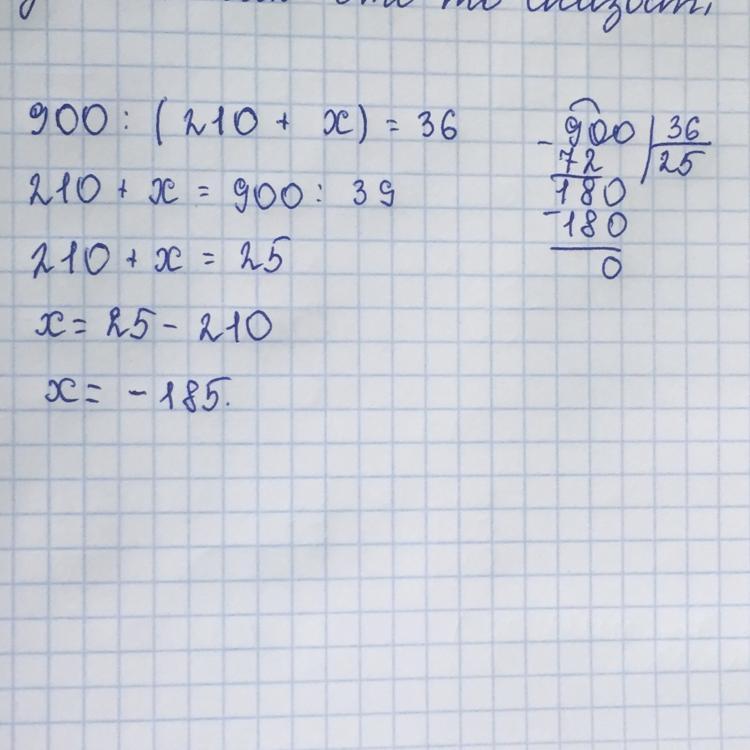 900 : ( 210 + x ) = 36
210 + x = 900 : 39
210 + x = 25
x = 25 - 210
x = - 185.
- 900 | 36
72 | 25
180
- 180
0